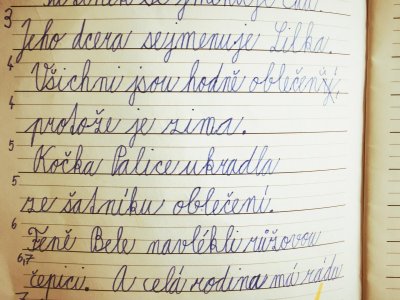 3 Jeho dcera sejmenuje Lilka.
4 Všichni jsou hodně oblečení,
4 protože je zima.
5 Kočka Palice ukradla
5 ze šatníku oblečení.
6 Feně Bele navlékli růžovou
6,7 čepici. A celá rodina má ráda